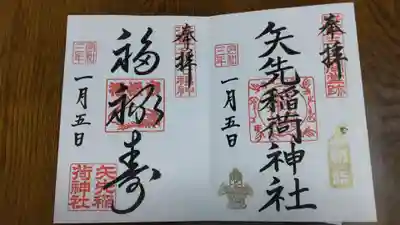 奉拝
矢先稲荷神社
一月五日
令和
三年
奉拝
福禄寿
一月五日
令和
三年
矢先稲
荷神社